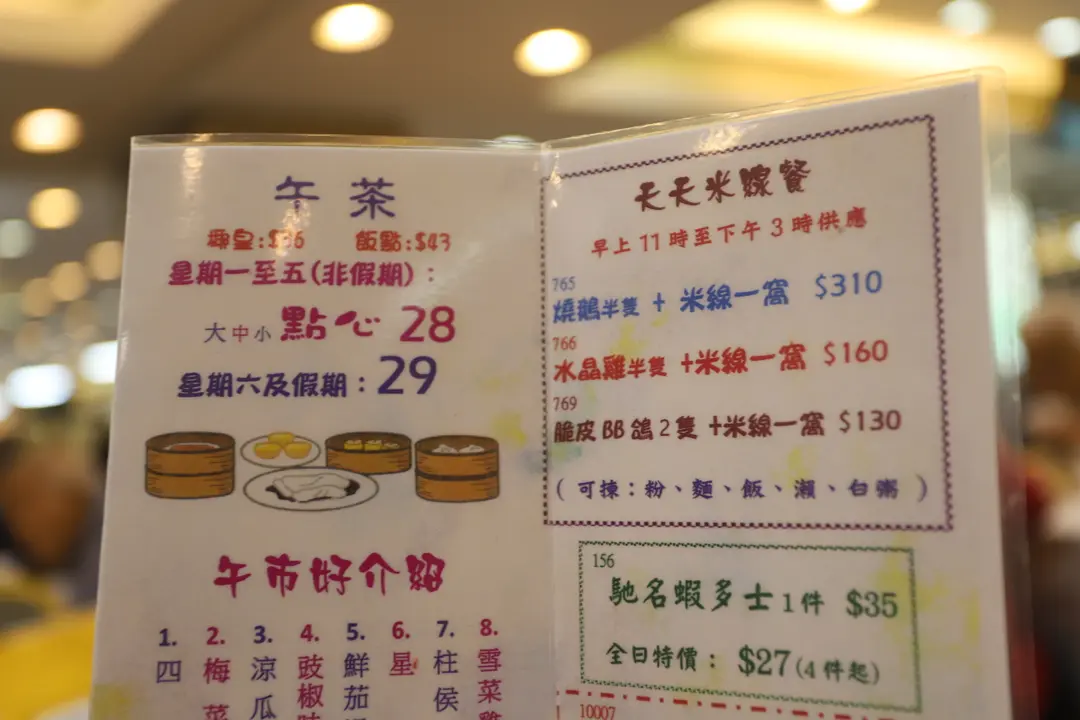 午 茶
飯點:$43
星期一至五(非假期):
大中小 點心 28
星期六及假期:29
午市好介紹
1. 2. 3. 4. 5. 6. 7. 8.
四 梅菜 涼瓜 豉椒 鮮茄 星 柱侯 雪菜
天天米線餐
早上 11 時至下午 3 時供應
765
燒鵝半隻 + 米線一窩 $310
766
水晶雞半隻 +米線一窩 $160
769
脆皮 BB 鴿 2 隻 +米線一窩 $130
( 可揀:粉、麵、飯、瀨、白粥 )
156
馳名蝦多士 1 件 $35
全日特價: $27(4 件起)
10007